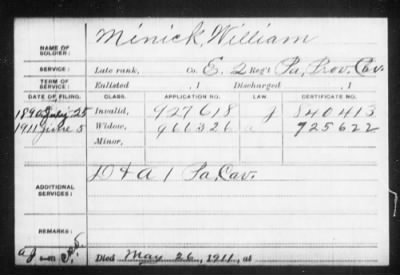 NAME OF SOLDIER: Minick, William
SERVICE: Late rank, Co. E. 2 Reg't Pa. Prov. Cav.
TERM OF SERVICE: Enlisted , 1 Discharged , 1
DATE OF FILING. CLASS. APPLICATION NO. LAW. CERTIFICATE NO.
1890 July 25 Invalid, 927618 J 840413
1911 June 5 Widow, 966326 a 725622
Minor,
ADDITIONAL SERVICES: D & A 1 Pa. Cav.
REMARKS:
Died May 26, 1911, at